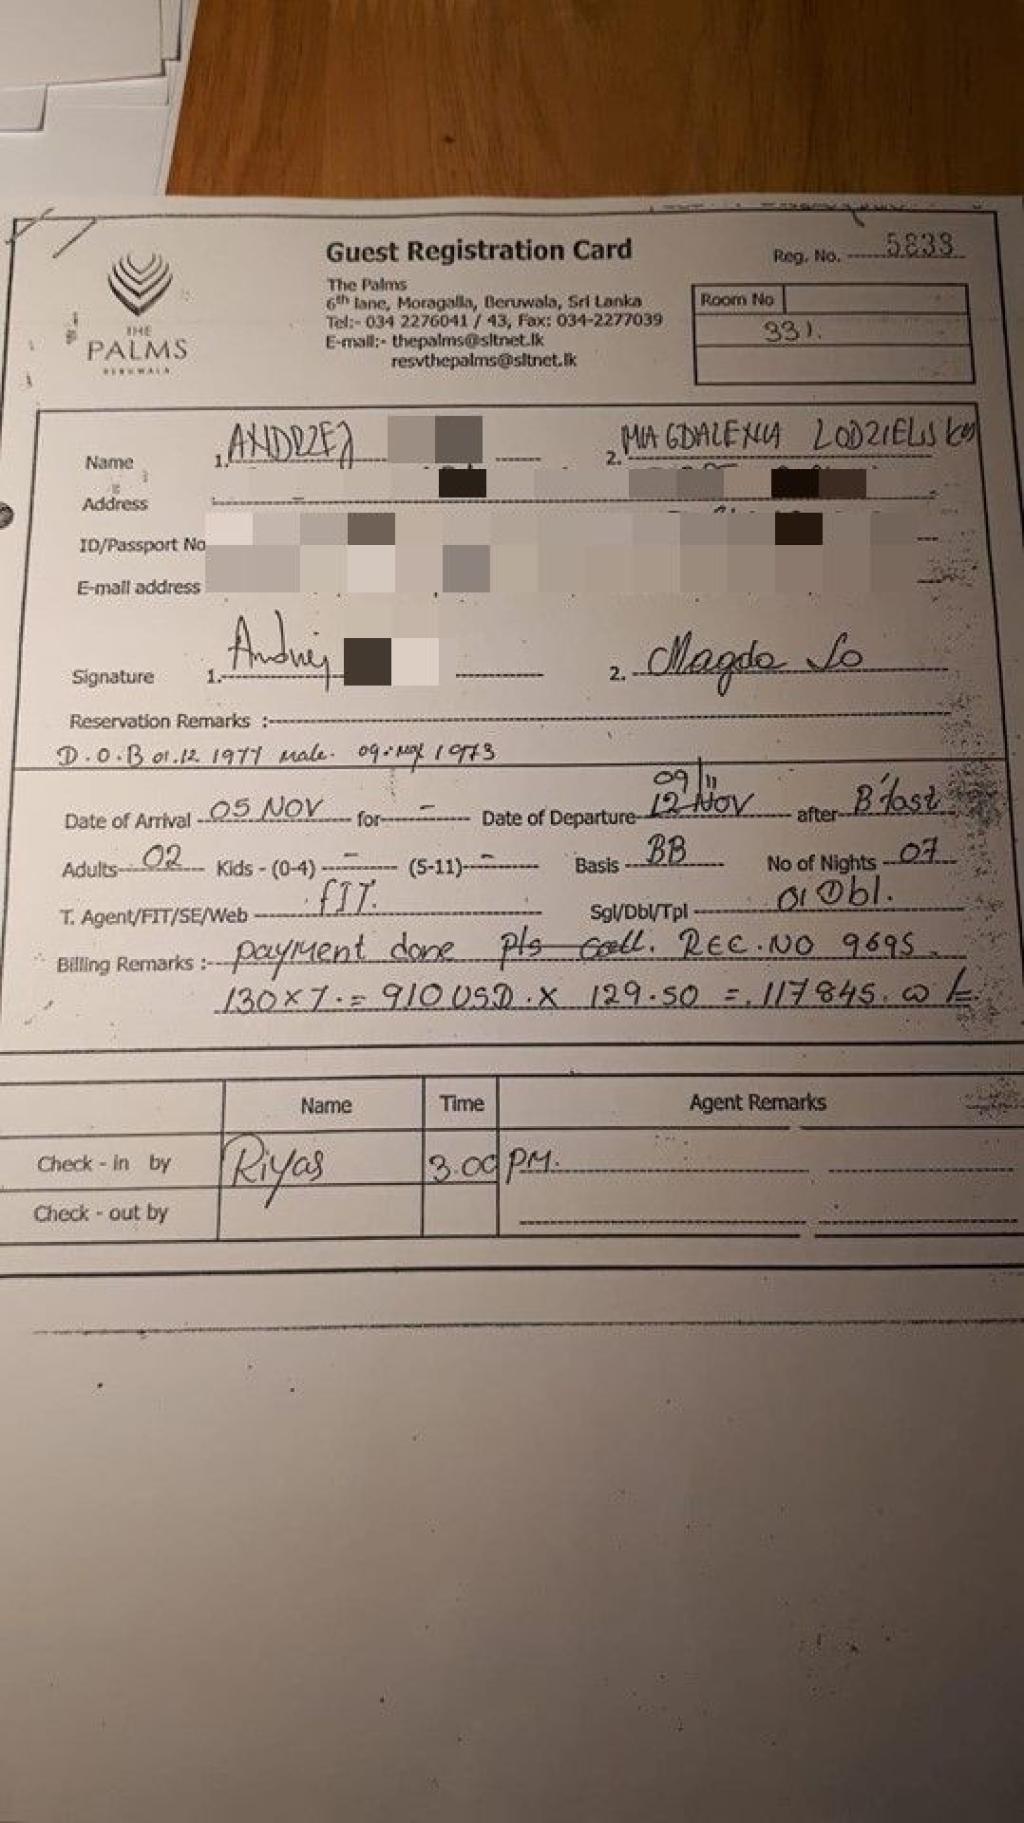 Guest Registration Card
Reg. No. 5833
THE
PALMS
BERUWALA
The Palms
6th lane, Moragalla, Beruwala, Sri Lanka
Tel:- 034 2276041 / 43, Fax: 034-2277039
E-mail:- thepalms@sltnet.lk
resvthepalms@sltnet.lk
Room No
331.
Name 1. ANDRZEJ 2. MAGDALENA
Address
ID/Passport No
E-mail address
Signature 1. Andrzej 2. Magda Lo
Reservation Remarks :-
D.O.B 01.12 1977 male. 09. 1973
09/11
Date of Arrival 05 NOV for - Date of Departure 12 NOV after B'fast
Adults 02 Kids - (0-4) - (5-11) - Basis BB No of Nights 07
T. Agent/FIT/SE/Web FIT. Sgl/Dbl/Tpl 01 Dbl.
Billing Remarks :- payment done pls coll. REC.NO 9695.
130 x 7. = 910 USD. x 129.50 =. 117845.
Name Time Agent Remarks
Check - in by Riyas 3.00 PM.
Check - out by